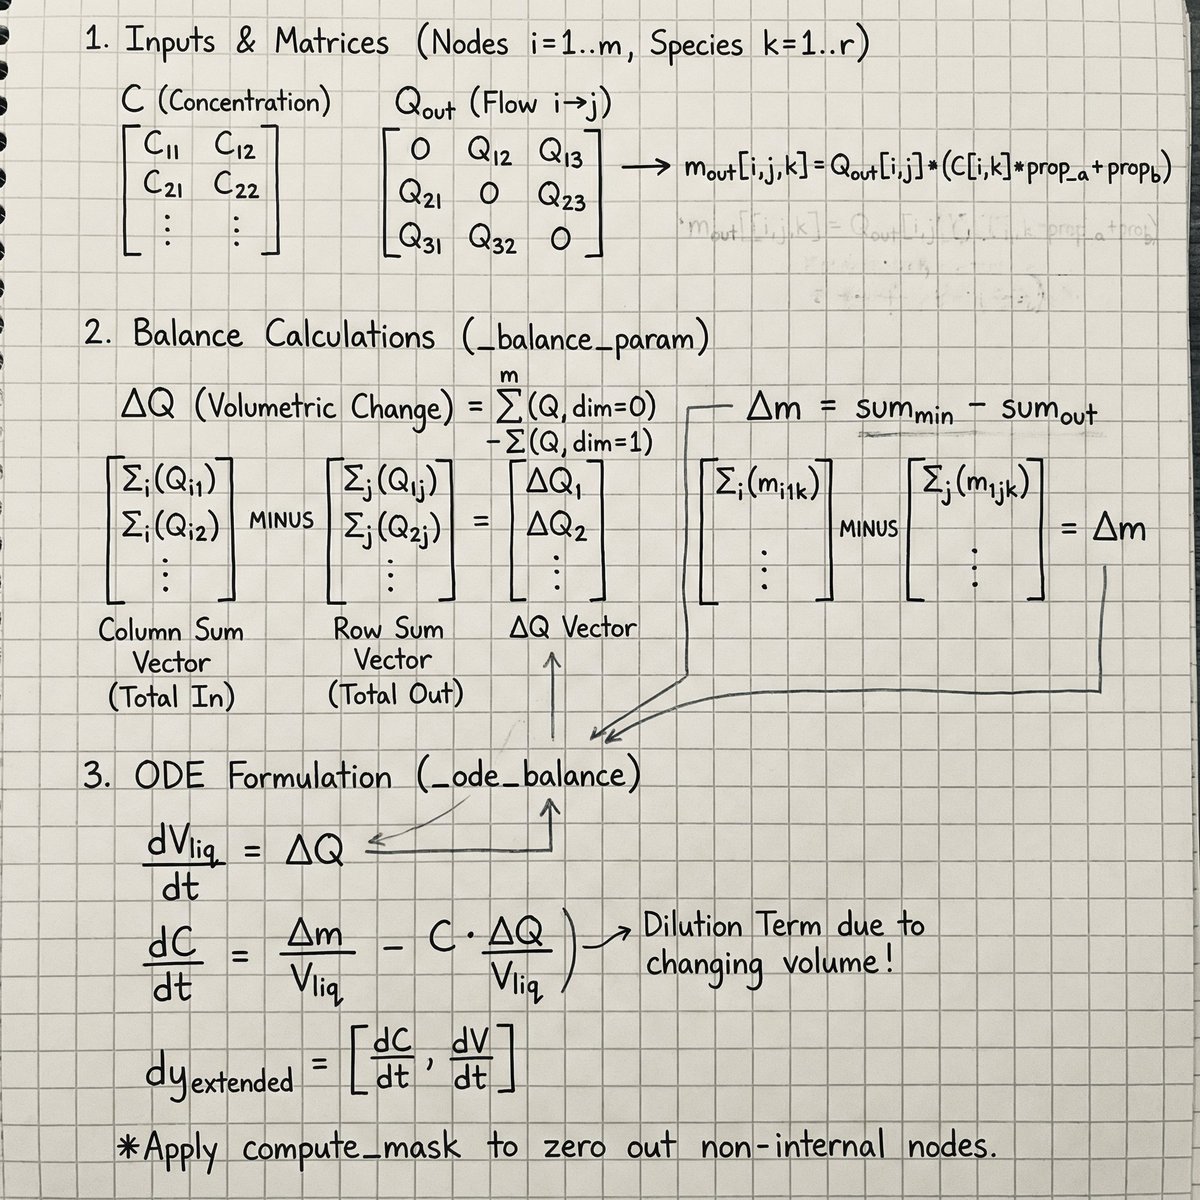 1. Inputs & Matrices (Nodes i=1..m, Species k=1..r)
C (Concentration)
Qout (Flow i→j)
C11 C12
C21 C22
⋮ ⋮
0 Q12 Q13
Q21 0 Q23
Q31 Q32 0
→ mout[i,j,k]=Qout[i,j]*(C[i,k]*prop_a+propb)
2. Balance Calculations (_balance_param)
ΔQ (Volumetric Change) = m∑(Q, dim=0)
-Σ(Q, dim=1)
Δm = summin - sumout
Σi(Qi1)
Σi(Qi2)
⋮
MINUS
Σj(Q1j)
Σj(Q2j)
⋮
=
ΔQ1
ΔQ2
⋮
Σi(mi1k)
⋮
MINUS
Σj(m1jk)
⋮
= Δm
Column Sum
Vector
(Total In)
Row Sum
Vector
(Total Out)
ΔQ Vector
3. ODE Formulation (_ode_balance)
dVliq/dt = ΔQ
dC/dt = Δm/Vliq - C · ΔQ/Vliq)
→ Dilution Term due to
changing volume!
dyextended = [dC/dt, dV/dt]
*Apply compute_mask to zero out non-internal nodes.